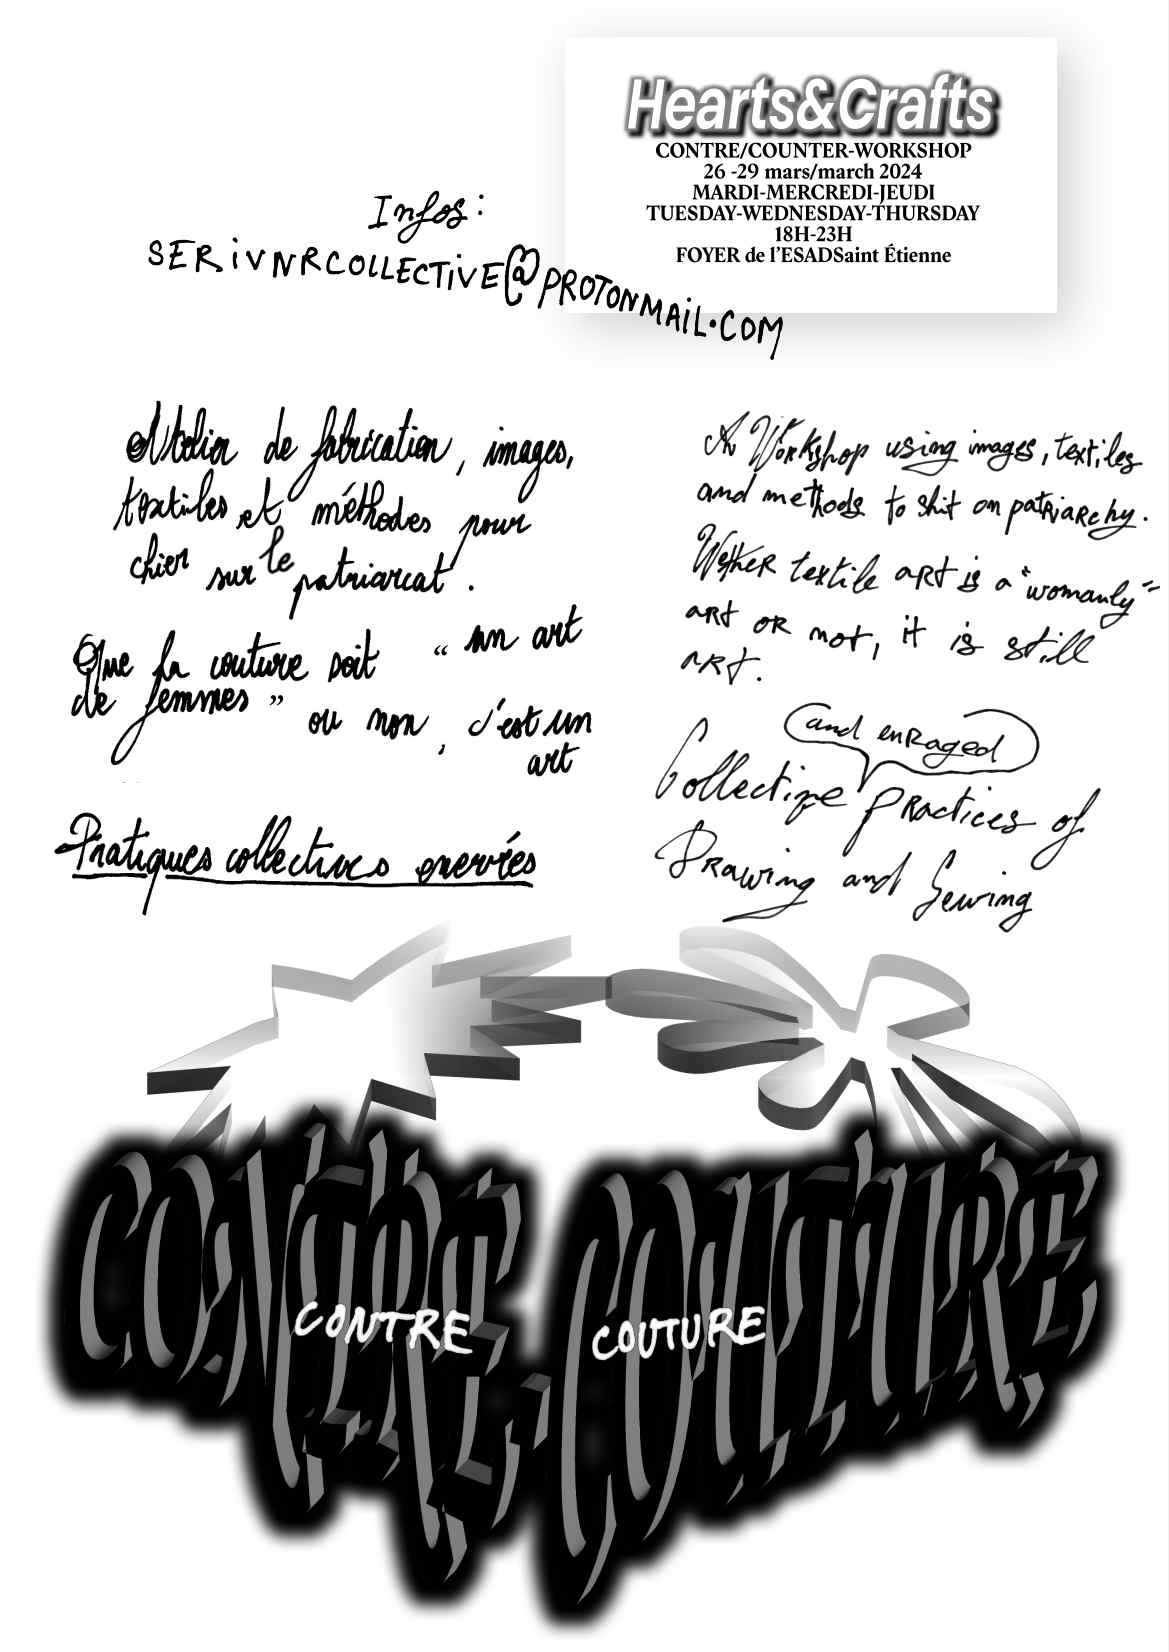 Hearts&Crafts
CONTRE/COUNTER-WORKSHOP
26 -29 mars/march 2024
MARDI-MERCREDI-JEUDI
TUESDAY-WEDNESDAY-THURSDAY
18H-23H
FOYER de l'ESADSaint Étienne
Infos:
SERiVNRCOLLECTiVE@PROTONMAiL.COM
Atelier de fabrication, images,
textiles et méthodes pour
chier sur le patriarcat.
Que la couture soit “un art
de femmes” ou non, c'est un
art
Pratiques collectives enervées
A Workshop using images, textiles
and methods to shit on patriarchy.
Wether textile art is a "womanly"
art or not, it is still
art.
and enraged
Collective practices of
Drawing and Sewing
CONTRE-COUTURE
CONTRE COUTURE